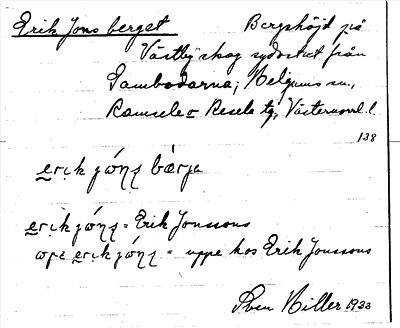 Erik Jons berget Bergshöjd på
Västby skog sydost ut från
Sambodarna, Helgums sn.,
Ramsele o Resele tg, Västernorrl. l.
138
erik jóns bärje
erik jóns = Erik Jonssons
erik jóns = uppe hos Erik Jonssons
Sven Hiller 1933